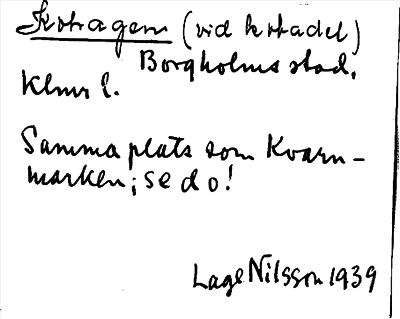 Kohagen (vid kohadel)
Borgholms stad.
Klmr l.
Samma plats som Kvarn-
marken; se d o!
Lage Nilsson 1939